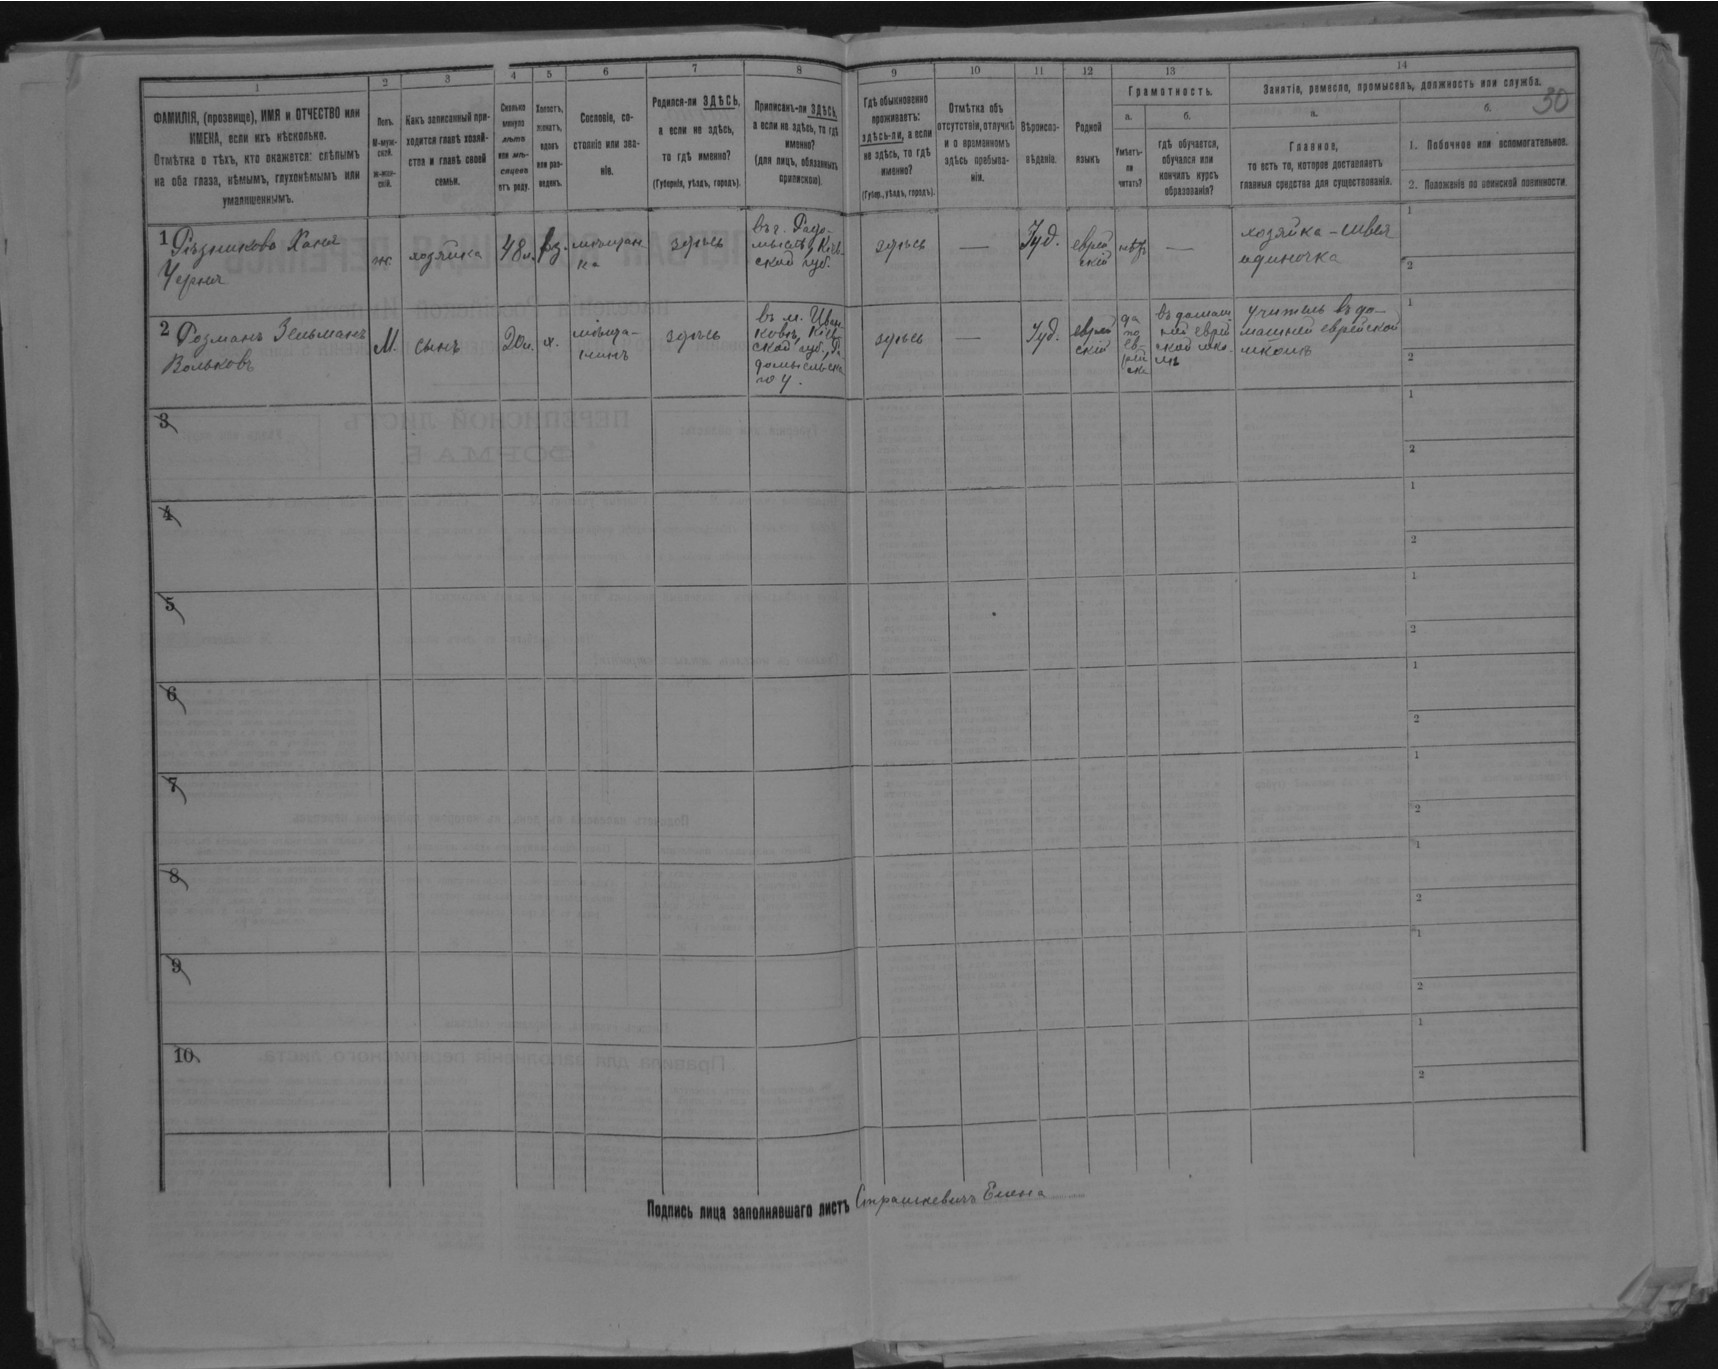 1 2 3 4 5 6 7 8 9 10 11 12 13 14
30
ФАМИЛІЯ, (прозвище), ИМЯ и ОТЧЕСТВО или
ИМЕНА, если ихъ нѣсколько.
Отмѣтка о тѣхъ, кто окажется: слѣпымъ
на оба глаза, нѣмымъ, глухонѣмымъ или
умалишеннымъ.
Полъ.
М-муж-
ской.
ж-жен-
скій.
Какъ записанный при-
ходится главѣ хозяй-
ства и главѣ своей
семьи.
Сколько
минуло
лѣтъ
или мѣ-
сяцевъ
отъ роду.
Холостъ,
женатъ,
вдовъ
или раз-
веденъ.
Сословіе, со-
стояніе или зва-
ніе.
Родился-ли ЗДѢСЬ,
а если не здѣсь,
то гдѣ именно?
(Губернія, уѣздъ, городъ).
Приписанъ-ли ЗДѢСЬ,
а если не здѣсь, то гдѣ
именно?
(для лицъ, обязанныхъ
припискою).
Гдѣ обыкновенно
проживаетъ:
здѣсь-ли, а если
не здѣсь, то гдѣ
именно?
(Губер., уѣздъ, городъ).
Отмѣтка объ
отсутствіи, отлучкѣ
и о временномъ
здѣсь пребыва-
ніи.
Вѣроиспо-
вѣданіе.
Родной
языкъ.
Грамотность.
а.
Умѣетъ-
ли
читать?
б.
гдѣ обучается,
обучался или
кончилъ курсъ
образованія?
Занятіе, ремесло, промыселъ, должность или служба.
а.
Главное,
то есть то, которое доставляетъ
главныя средства для существованія.
б.
1. Побочное или вспомогательное.
2. Положеніе по воинской повинности.
1 Рѣзникова Хана
Черня
ж.
хозяйка
48 л.
мѣщан
ка
здѣсь
въ г. Радо-
мыслѣ, Кіев-
ской губ.
здѣсь
—
Іуд.
еврей
скій
нѣтъ
—
хозяйка - швея
одиночка
1
2
2 Розманъ Зельманъ
Вольковъ
М.
сынъ
20 л.
х.
мѣща-
нинъ
здѣсь
въ м. Иван
ковѣ, Кіев
ской губ., Ра
домысльска
го у.
здѣсь
—
Іуд.
еврей
скій
да
по
ев-
рей
ски
въ домаш
ней еврей
ской шко-
лѣ
учитель въ до-
машней еврейской
школѣ
1
2
3
1
2
4
1
2
5
1
2
6
1
2
7
1
2
8
1
2
9
1
2
10
1
2
Подпись лица заполнявшаго листъ Страшкевичъ Елена